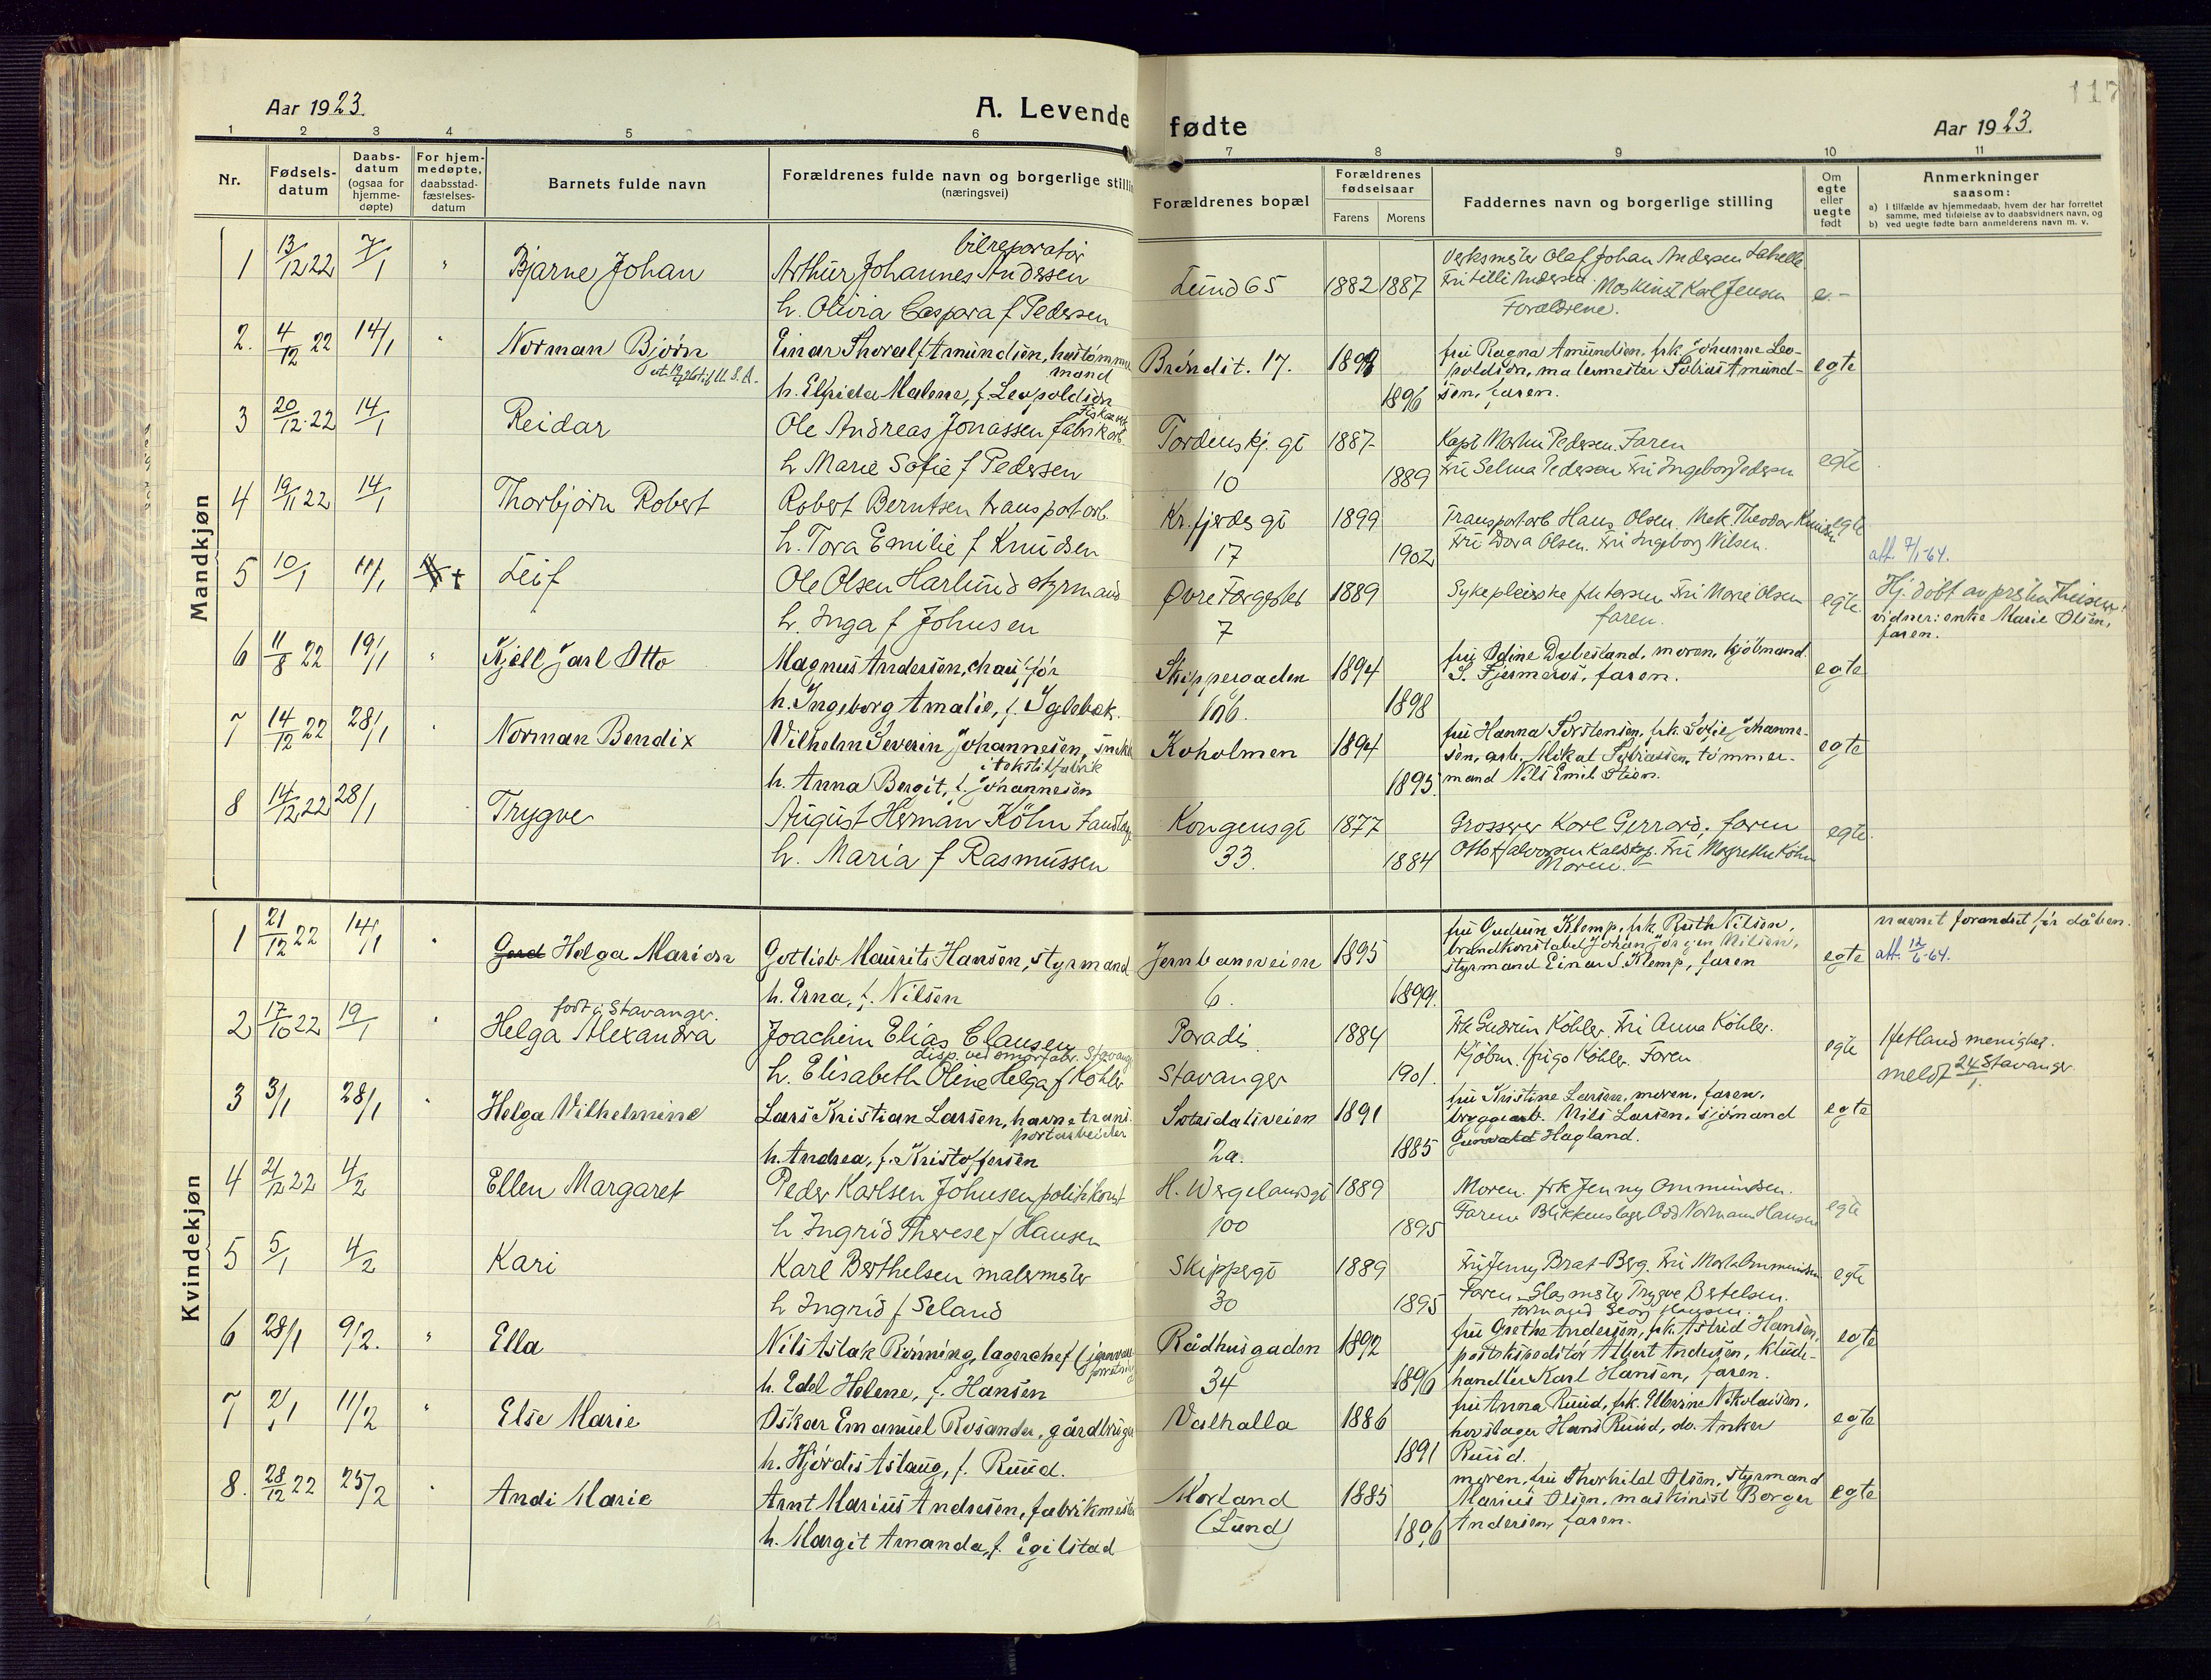 117
Aar 1923.
A. Levende fødte
Aar 1923.
1 2 3 4 5 6 7 8 9 10 11
Nr.
Fødsels-
datum
Daabs-
datum
(ogsaa for
hjemme-
døpte)
For hjem-
medøpte,
daabsstad-
fæstelses-
datum
Barnets fulde navn
Forældrenes fulde navn og borgerlige stilling
(næringsvei)
Forældrenes bopæl
Forældrenes
fødselsaar
Farens Morens
Faddernes navn og borgerlige stilling
Om
egte
eller
uegte
født
Anmerkninger
saasom:
a) i tilfælde av hjemmedaab, hvem der har forrettet
samme, med tilføielse av to daabsvidners navn, og
b) ved uegte fødte barn anmelderens navn m. v.
Mandkjøn
1 13/12 22 7/1 " Bjarne Johan
bilreparatør
Arthur Johannes Andersen
h. Olivia Caspara f Pedersen
Lund 65 1882 1887
Verksmester Olaf Johan Andersen
Fru Lilli Andersen. Maskinist Karl Jensen
Forældrene.
e.-
2. 4/12 22 14/1 " Norman Bjørn
U.S.A.
Einar Thoralf Amundsen,
mand
h. Elfrida Malene, f. Leopoldsen
Brøndst. 17. 1896
fru Ragna Amundsen, frk. Johanne Leo-
poldsen, malermester Tobias Amund-
sen, faren.
egte
3 20/12 22 14/1 Reidar
Ole Andreas Jonassen fabrikarb.
h Marie Sofie f Pedersen
Tordenskj. gt 10 1887 1889
Kapt Martin Pedersen. Faren
Fru Selma Pedersen Fru Ingeborg Pedersen
egte
4 19/11 22 14/1 Thorbjørn Robert
Robert Berntsen transportarb.
h. Tora Emilie f Knudsen
Kr. fjerdes gt 17 1899 1902
Transportarb Hans Olsen. Mek. Theodor Knudsen
Fru Dora Olsen. Fru Ingeborg Nilsen.
egte
att. 7/1-64.
5 10/1 11/1 + Leif
Ole Olsen Harlund styrmand
h. Inga f Johnsen
Øvre Torggate 7 1889
Sykepleierske Fru Marie Olsen
faren.
egte
Hj. døbt av
vidner: enke Marie Olsen,
faren.
6 11/8 22 19/1 " Kjell Jarl Otto
Magnus Andersen, chauffør
h. Ingeborg Amalie, f. Iglebæk.
Skippergaden 1894 1898
fru Odine Dybesland, moren, kjøbmand
S. Fjermeros, faren.
egte
7 14/12 22 28/1 " Norman Bendix
Vilhelm Severin Johannesen,
i tekstilfabrik
h. Anna Bergit, f. Johannesen
Koholmen 1894 1895.
fru Hanna Torstensen, frk. Sofie Johanne-
sen, arb. Mikal Tobiassen, tømmer-
mand Nils Emil Olsen.
egte
8 14/12 22 28/1 Trygve
August Herman Köhn
h. Maria f Rasmussen
Kongensgt 33. 1877 1884
Grosserer Karl Gerrard. faren
Otto Halvorsen Fru Magrethe Köhn
Moren.
egte.
Kvindekjøn
1 21/12 22 14/1 " Gerd Helga Marion
Gotlieb Maurits Hansen, styrmand
h. Erna, f. Nilsen
Jernbaneveien 6. 1895 1899.
fru Gudrun Klemp, frk. Ruth Nilsen,
brandkonstabel Johan Jørgen Nilsen,
styrmand Einar S. Klemp, faren
egte
navnet forandret før dåben.
att. 12/6-64.
2 17/10 22 19/1 "
født i Stavanger.
Helga Alexandra
Joachim Elias Clausen
disp. ved smørfabr. Stavanger
h. Elisabeth Oline Helga f Köhler
Paradis Stavanger 1884 1901.
Frk Gudrun Köhler, Fru Anna Köhler.
Kjøbm. Köhler. Faren
egte
Hetland menighet.
meldt 24/1 Stavanger
3 3/1 28/1 " Helga Vilhelmine
Lars Kristian Larsen, havnetrans-
portarbeider
h. Andrea, f. Kristoffersen
Solsidalsveien 2a. 1891 1885
fru Kristine Larsen, moren, faren,
bryggearb. Nils Larsen, sjømand
Gunvald Hagland.
egte
4 21/12 22 4/2 Ellen Margaret
Peder Karlsen Johnsen politikonst
h Ingrid Therese f Hansen
H. Wergelandsgt 100 1889 1895
Moren. frk Jenny Ommundsen.
Faren Blikkenslager Odd Normann Hansen
egte
5 5/1 4/2 Kari
Karl Berthelsen malermester
h Ingrid f Seland
Skippergt 30 1889 1895
Fru Jenny Brat-Berg. Fru
Faren Glasmester Trygve Bertelsen.
Formand Georg Hansen.
egte
6 28/1 9/2. " Ella
Nils Aslak Rönning, lagerchef
h. Edel Helene, f. Hansen
Rådhusgaden 34 1892 1896
fru Grethe Andersen, frk. Astrid Hansen,
postekspeditør Albert Andersen, klude-
handler Karl Hansen, faren.
egte
7 2/1 11/2 " Else Marie
Oskar Emanuel Rosander, gårdbruger
h. Hjørdis Aslaug, f. Ruud.
Valhalla 1886 1891
fru Anna Ruud, frk. Ellevine Nikolaisen,
hovslager Hans Ruud, do. Anker
Ruud.
egte
8. 28/12 22 25/2 " Andi Marie
Arnt Marius Andresen, fabrikmester
h. Margit Amanda, f. Egilstad
Morland (Lund) 1885 1896
moren, fru Thorhild Olsen, styrmand
Marius Olsen, maskinist Borger
Andersen, faren.
egte